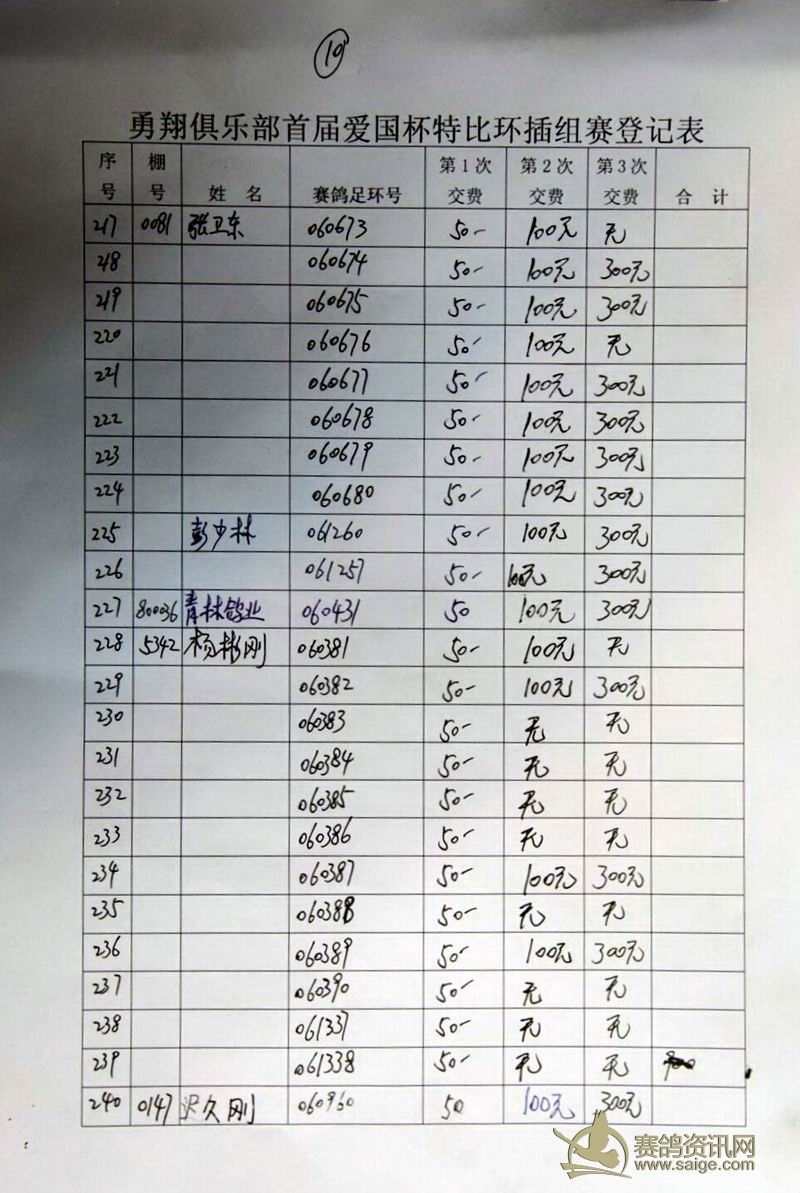 10
勇翔俱乐部首届爱国杯特比环插组赛登记表
序号 棚号 姓 名 赛鸽足环号 第1次交费 第2次交费 第3次交费 合 计
217 0081 张卫东 060673 50- 100元 无
218 060674 50- 100元 300元
219 060675 50- 100元 300元
220 060676 50- 100元 无
221 060677 50- 100元 300元
222 060678 50- 100元 300元
223 060679 50- 100元 300元
224 060680 50- 100元 300元
225 彭少林 061260 50- 100元 300元
226 061257 50- 100元 300元
227 800036 青林鸽业 060431 50 100元 300元
228 5342 杨彬刚 060381 50- 100元 无
229 060382 50- 100元 300元
230 060383 50- 无 无
231 060384 50- 无 无
232 060385 50- 无 无
233 060386 50- 无 无
234 060387 50- 100元 300元
235 060388 50- 无 无
236 060389 50- 100元 300元
237 060390 50- 无 无
238 061337 50- 无 无
239 061338 50- 无 无
240 0147 久刚 060960 50 100元 300元
赛鸽资讯网
www.saige.com